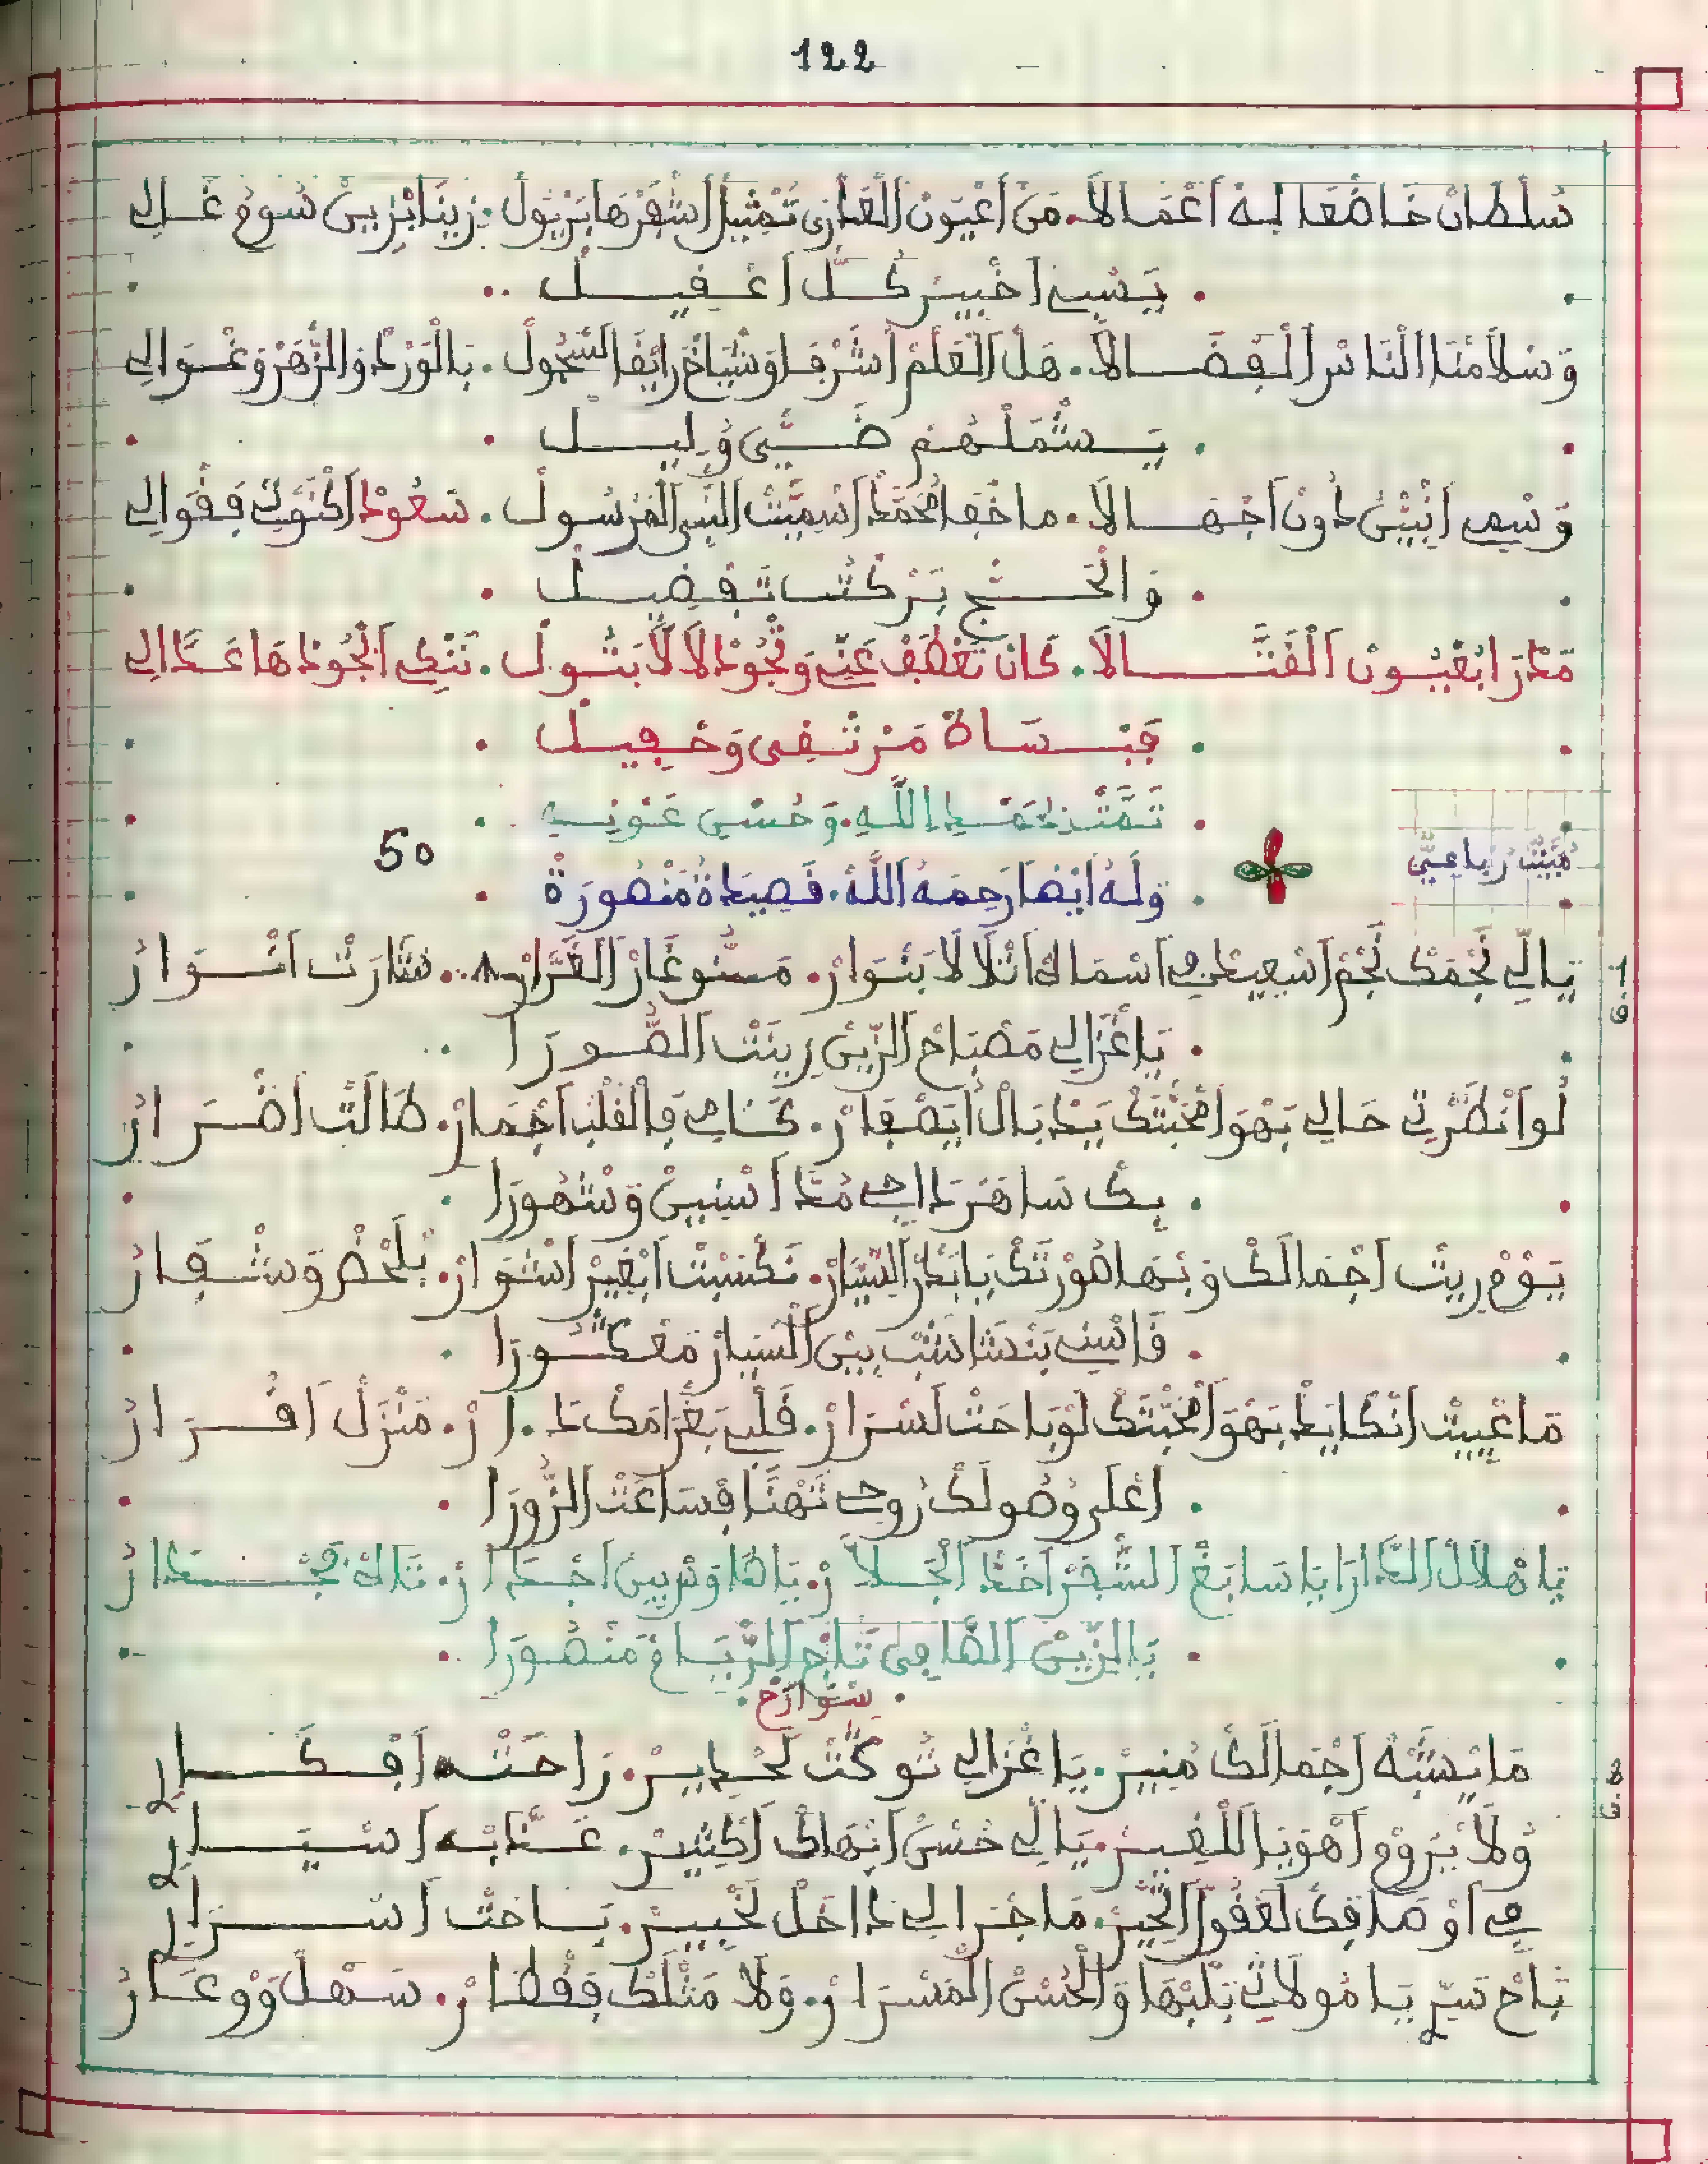 122
سُلْطَانْ خَاضْعَا لِهْ أَعْمَالَا. مَنْ أَعْيُونْ الْغَازِي تَمْثِيلْ أَشْفَرْهَا بَرْيُولْ. زِينَا بْزِينْ سُومُ غَالِي
. يَسْبِي اخْبِيرْ كُلّْ اعْقِيلْ ..
وَسْلَامْنَا النَّاسْ الْفْضَالَا. هَلْ الْعَلْمْ أَشْرْفَا وَشْيَاخْ رَايْقَا السّْجُولْ. بَالْوَرْدْ وَالزّْهَرْ وَغْوَالِي
. يَشْمَلْهُمْ ضَيّْ وُلِيلْ .
وَسْمِي انْبَيّْنُ دُونْ اجْهَالَا. مَاخْفَا مْحَمَّدْ اسْمِيّْتْ النّْبِي الْمَرْسُولْ. سَعُودْ اكْنَوْتِي فَقْوَالِي
. وَالْحَجّْ بَرْكْتْ تَفْضِيلْ .
مَدْرَا بْغْيُونْ الْقَتَّالَا. كَانْ تَعْطَفْ عَنِّي وَتْجُودْ لَالَّا بَتُولْ. نَنْكِي الْجُودْهَا عَدَّالِي
. فَبْسَاطْ مَرْتْقِي وَحْفِيلْ .
. تَمَّتْ بحَمْدِ اللَّهِ. وَحُسْنِ عَوْنِهِ .
مْبَيّْتْ رُبَاعِيّ
50
. وَلَهُ ايْضا رَحِمَهُ اللَّهُ. قَصِيدَةُ مَنْصُورَةْ .
1
ف
يَالِّي نَجْمَكْ نَجْمْ اسْعِيدْ فِي اسْمَاكْ اتْلَالَا بَنْوَارْ. مَنُّو غَارْ الْغَرَّارْ. سَارَتْ انْوَارُ
. يَاغْزَالِي مَصْبَاحْ الزِّينْ زِينَتْ الصُّورَا ..
لُو انْظَرْتِي حَالِي بَهْوَا مْحَبّْتَكْ يَدْبَالْ ايَصْفَارْ. كَنَّامِي فِالْقَلْبْ اجْمَارْ. طَالَتْ اضْرَارُ
. بِكْ سَاهَرْ دَاجِي مُدَّ اسْنِينْ وَشْهُورَا .
يَوْمْ رِيتْ اجْمَالَكْ وَبْهَا صُورْتَكْ يَا بَدْرْ السِّيَارْ. نَكْسِيتْ ابْغَيْرْ اشْوَارْ. بْلَحْضْ وَشْفَارُ
. قَاسْنِي بَنْشَاشَبْ بِينْ السْيَارْ مَعْكُورَا .
مَاعْيِيتْ انْكَايَدْ بَهْوَا مْحَبّْتَكْ لَوْ بَاحَتْ لَسْرَارْ. قَلْبِي بَغْرَامَكْ دَارْ. مَنْزَلْ اقْرَارُ
. اعْلَى وُصُولَكْ رُوحِي تَهْنَا فْسَاعَتْ الزُّورَا .
يَاهْلَالْ الدَّارَا يَاسَابَغْ الشّْفَرْ اخَدّْ الْجَلَّارْ. يَاطَاوَسْ بِينْ اجْدَارْ. تَاكْ نَجْدَارُ
. يَالزِّينْ الضَّامِي تَاجْ الرِّيَامْ مَنْصُورَا ..
. سْوَارَحْ .
2
ف
مَا يْشَبْهْ اجْمَالَكْ مُنِيرْ. يَاغْزَالِي تُوكَتْ لَحْدِيرْ. رَاحَتْ افْكَارِي
وُلَا يْرُومْ اهْوَيَا اللّْغِيرْ. يَالِّي حُسْنْ ابْهَاكْ اكْثِيرْ. عَدَّابْ اسْيَارِي
فِي اوْصَافِكْ لَعْقُولْ اتْحِيرْ. مَاجْرَالِي دَاخَلْ لَخْبِيرْ. بَاحَتْ اسْرَارِي
بَاحْ سَرِّي يَا مُولَاتِي بَلْبْهَا وَالْحُسْنْ الْمَسْرَارْ. وَلَا مَثْلَكْ فَقْطَارْ. سَهْلْ وَوْعَارُ